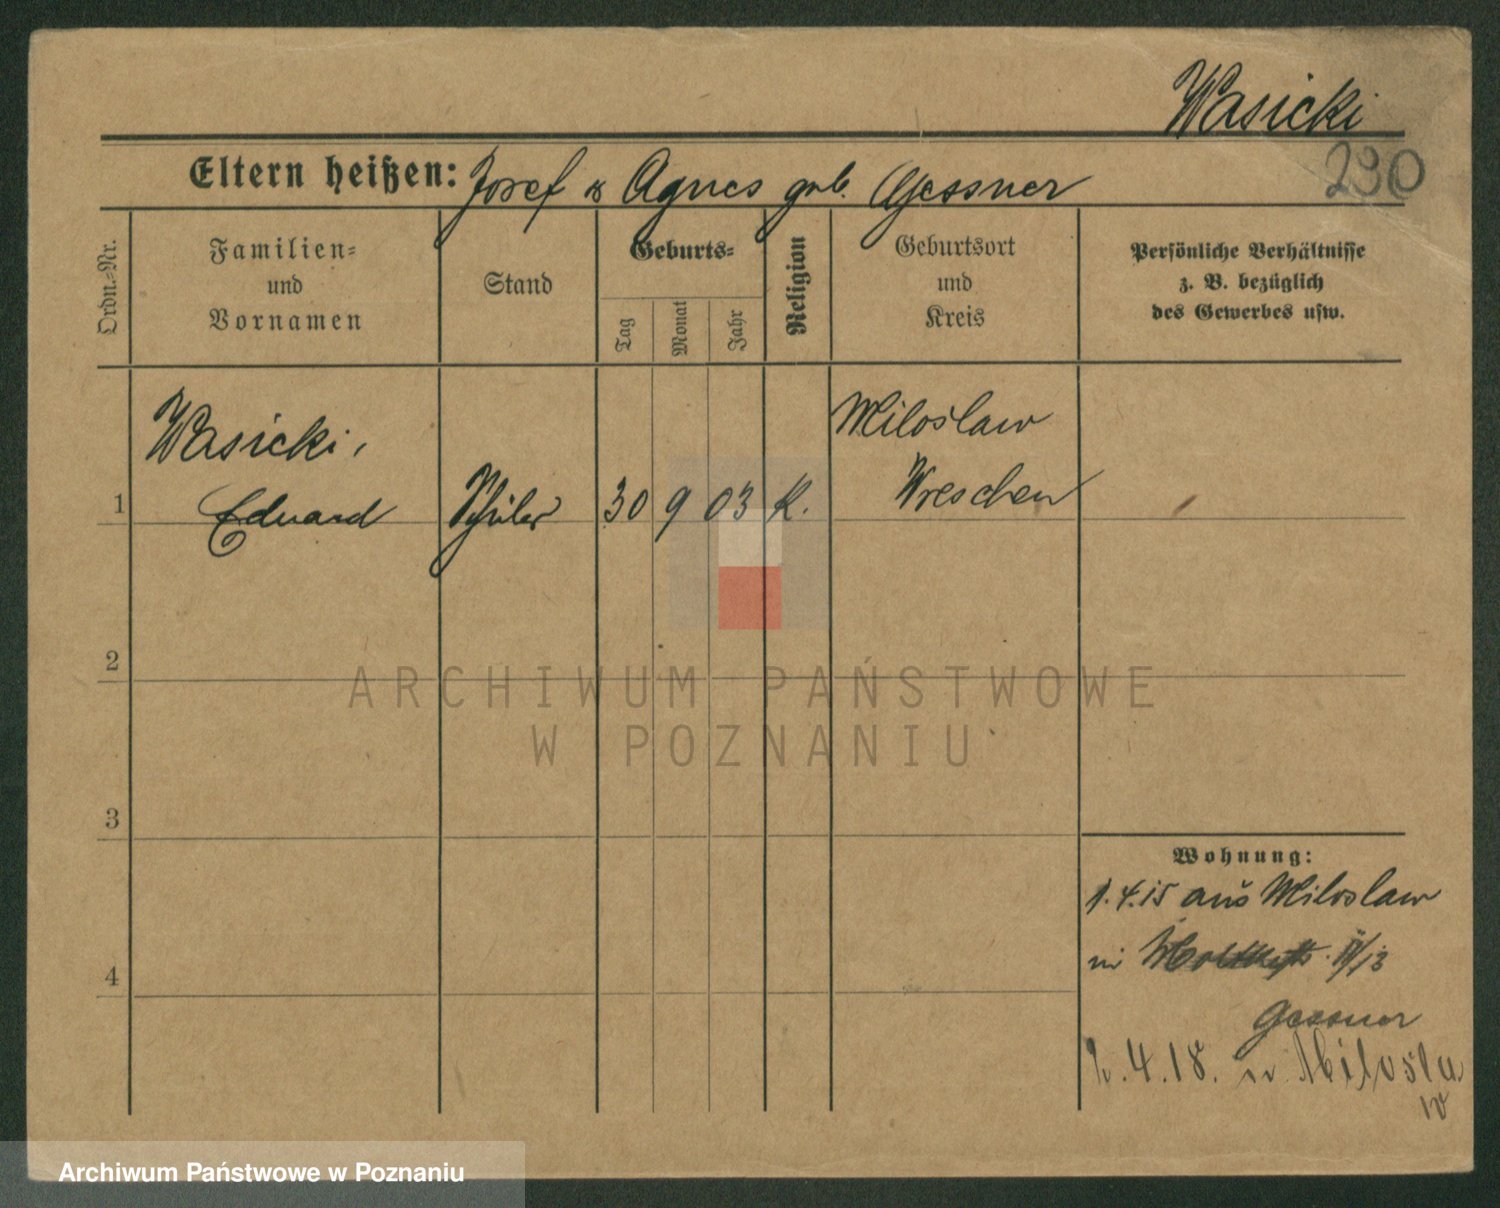 Wasicki
Eltern heißen: Josef & Agnes geb. Gessner
290
Ordn.-Nr.
Familien-
und
Vornamen
Stand
Geburts-
Tag
Monat
Jahr
Religion
Geburtsort
und
Kreis
Persönliche Verhältnisse
z. B. bezüglich
des Gewerbes usw.
Wasicki,
Miloslaw
1 Eduard Schüler 30 9 03 K. Wreschen
2
ARCHIWUM PAŃSTWOWE
W POZNANIU
3
Wohnung:
1.4.15 aus Miloslaw
4
Gessner
.4.18. n. Miloslaw
Archiwum Państwowe w Poznaniu